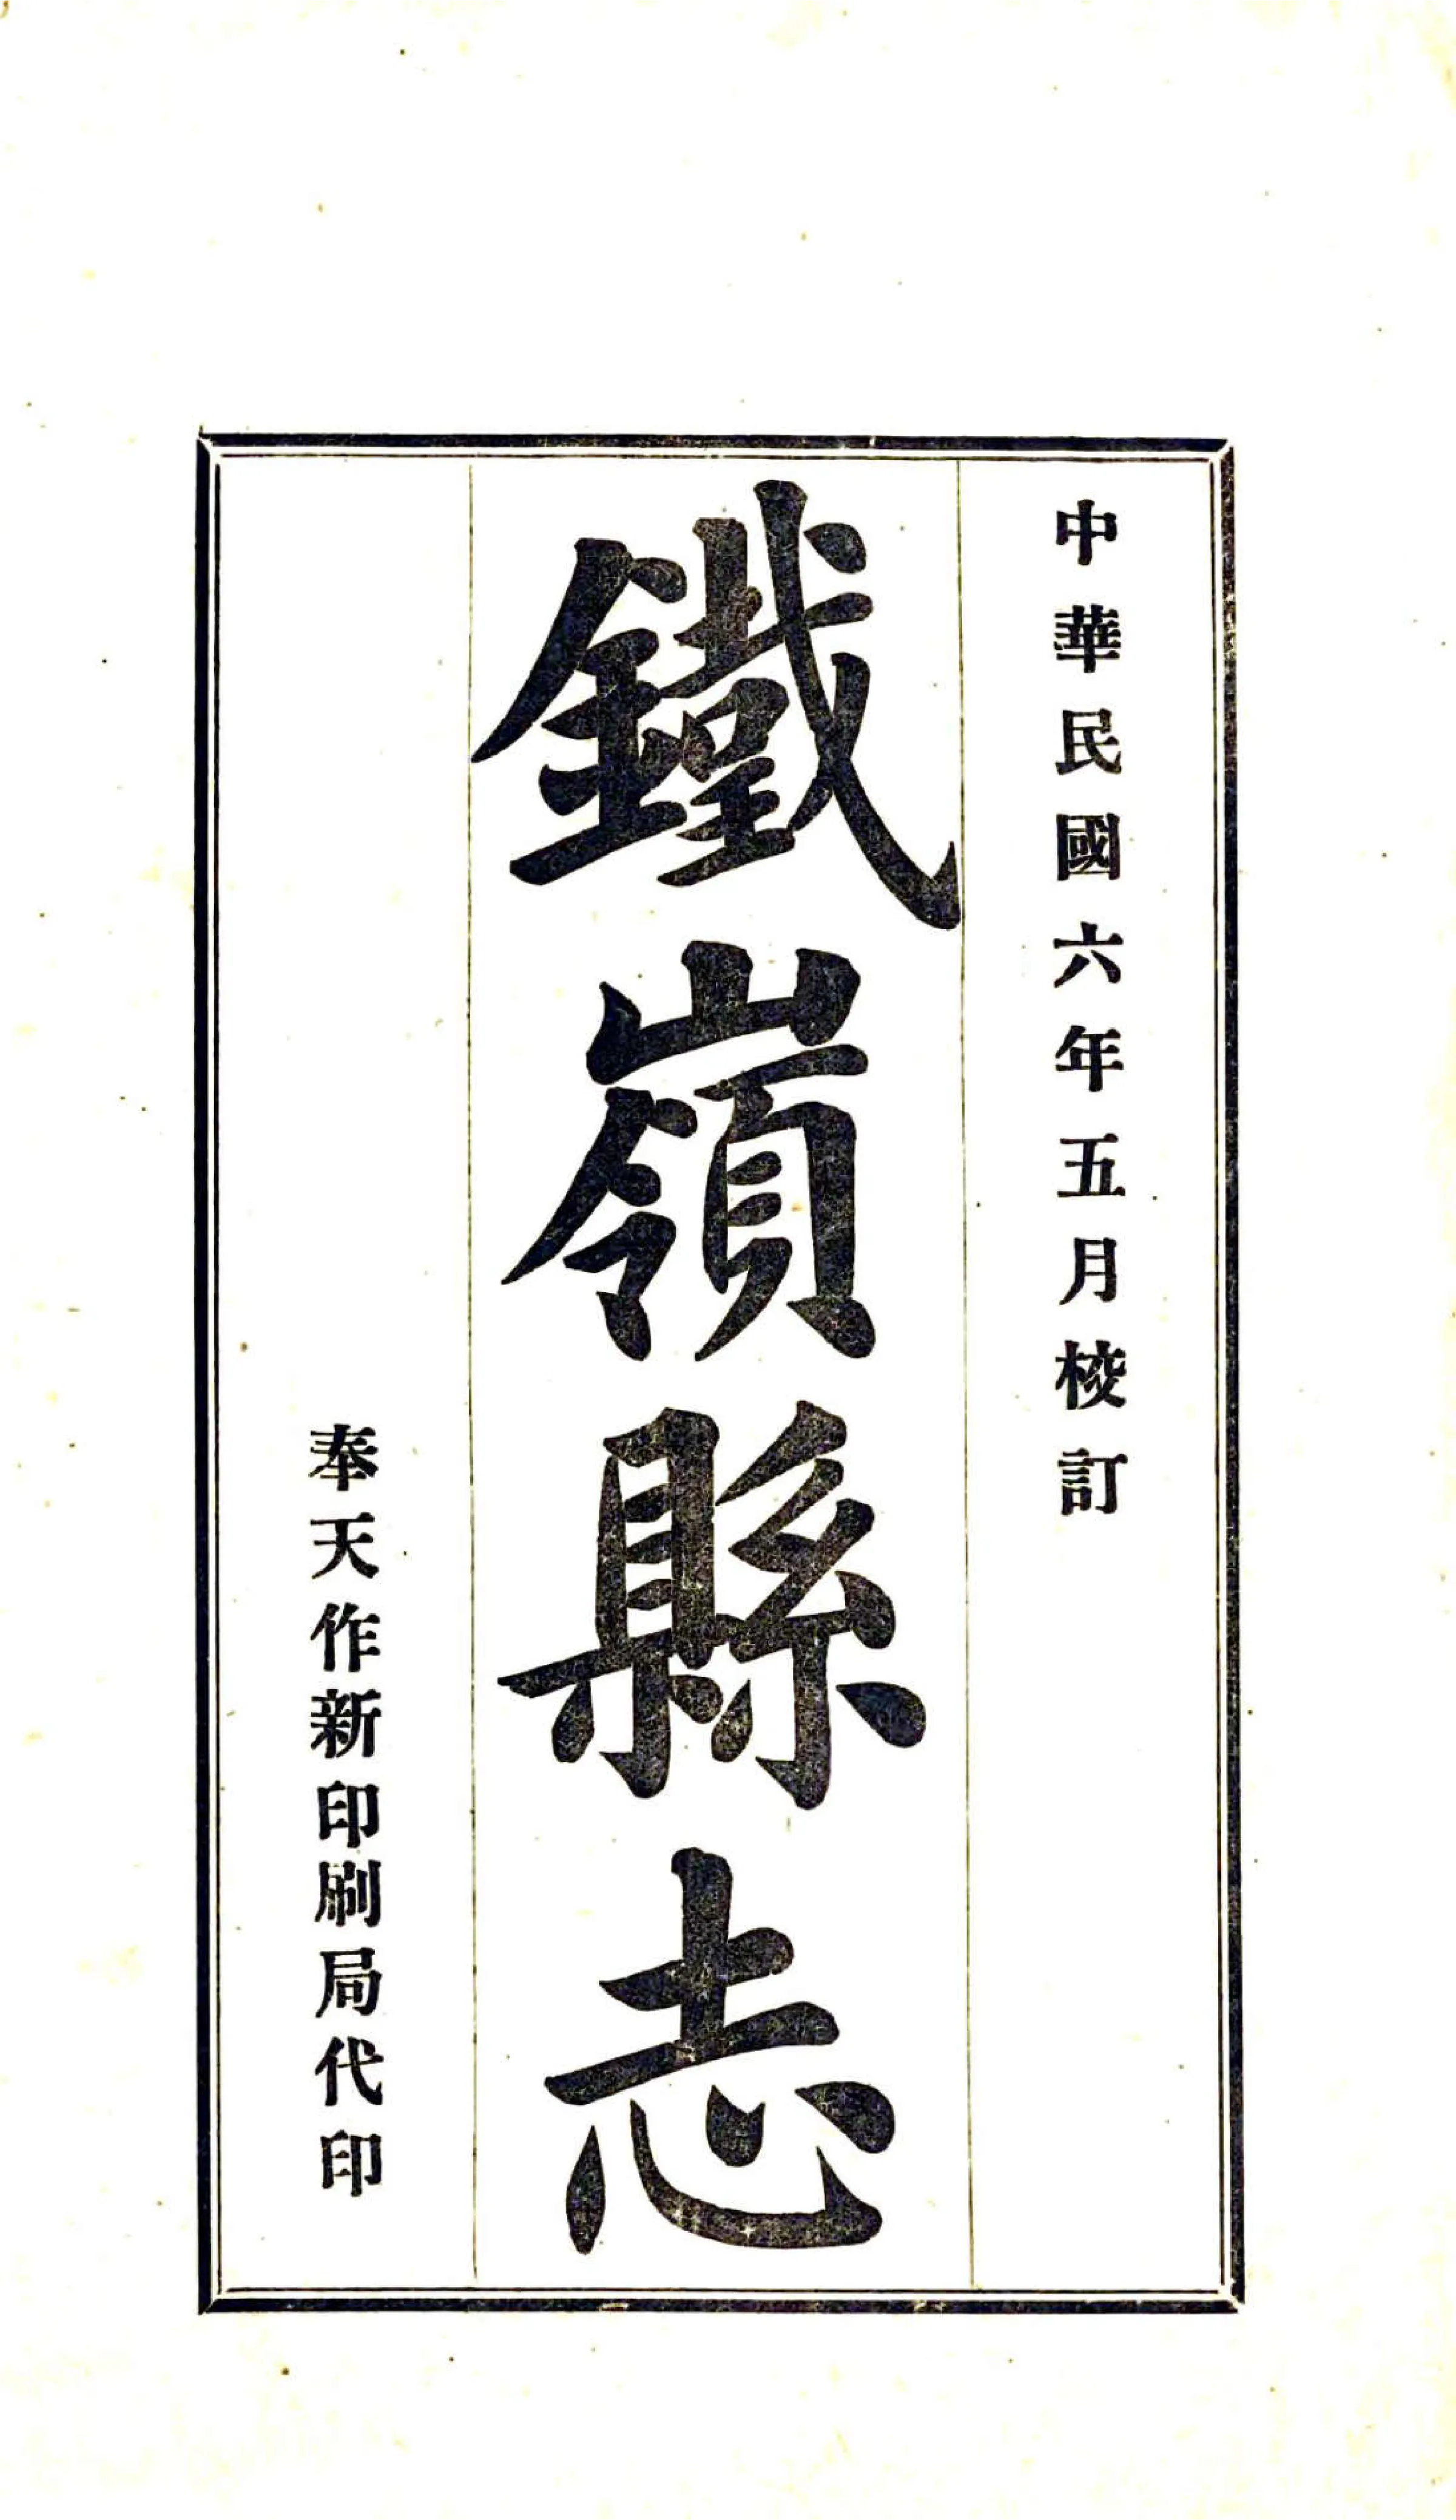 中華民國六年五月校訂
鐵嶺縣志
奉天作新印刷局代印